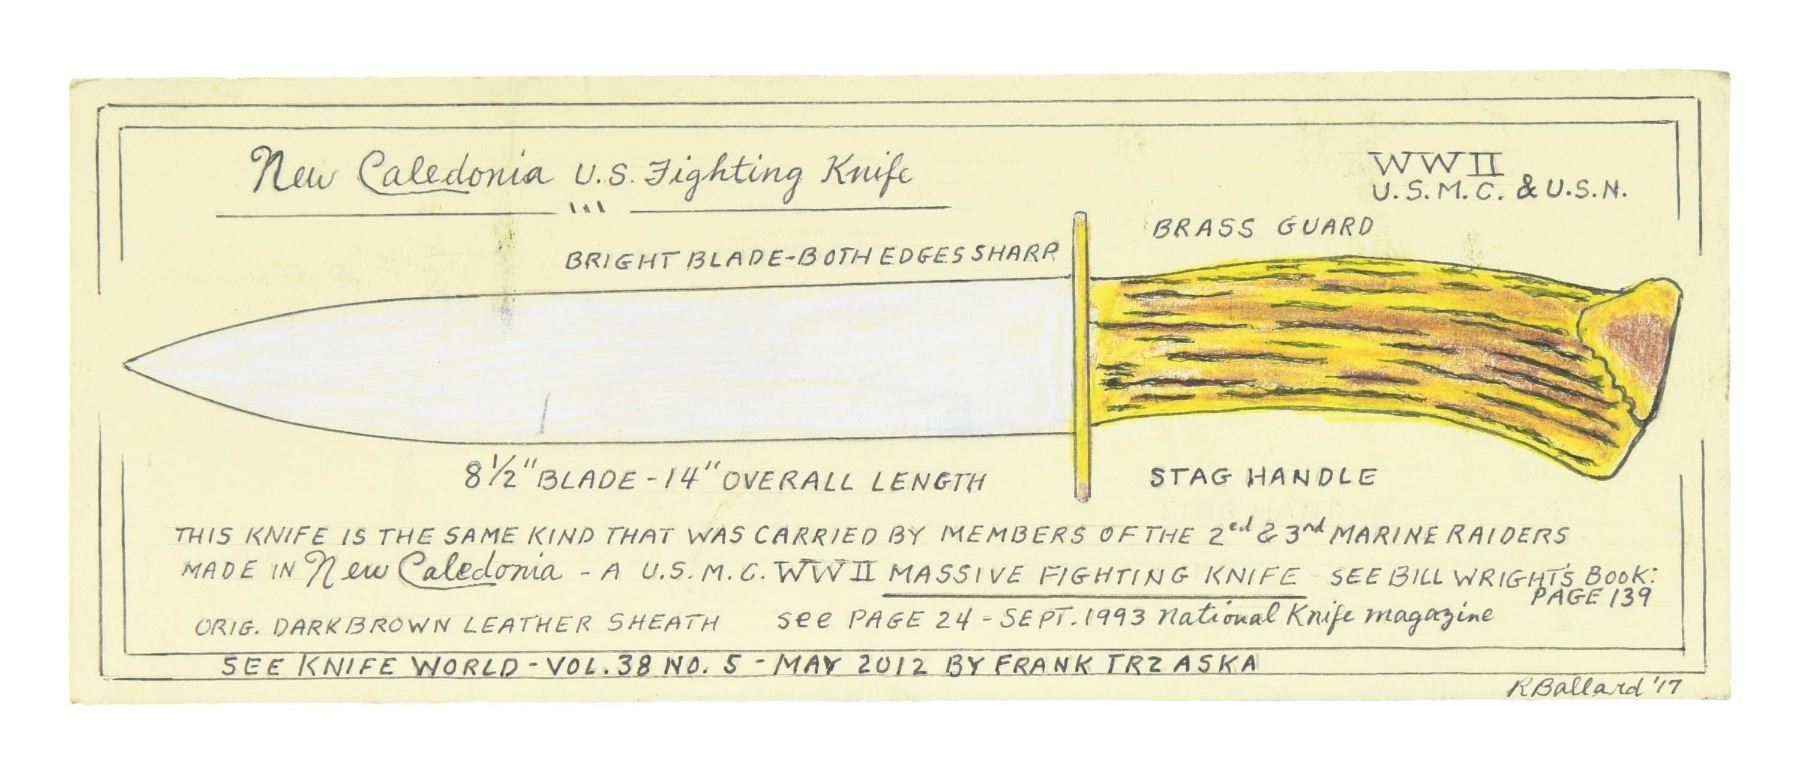 New Caledonia U.S. Fighting Knife
WWII
U.S.M.C. & U.S.N.
BRASS GUARD
BRIGHT BLADE-BOTH EDGES SHARP
8½" BLADE - 14" OVERALL LENGTH
STAG HANDLE
THIS KNIFE IS THE SAME KIND THAT WAS CARRIED BY MEMBERS OF THE 2ed & 3rd MARINE RAIDERS
MADE IN New Caledonia - A U.S.M.C. WWII MASSIVE FIGHTING KNIFE - SEE BILL WRIGHT'S BOOK:
PAGE 139
ORIG. DARK BROWN LEATHER SHEATH see PAGE 24 - SEPT. 1993 National Knife magazine
SEE KNIFE WORLD - VOL. 38 NO. 5 - MAY 2012 BY FRANK TRZASKA
R Ballard '17